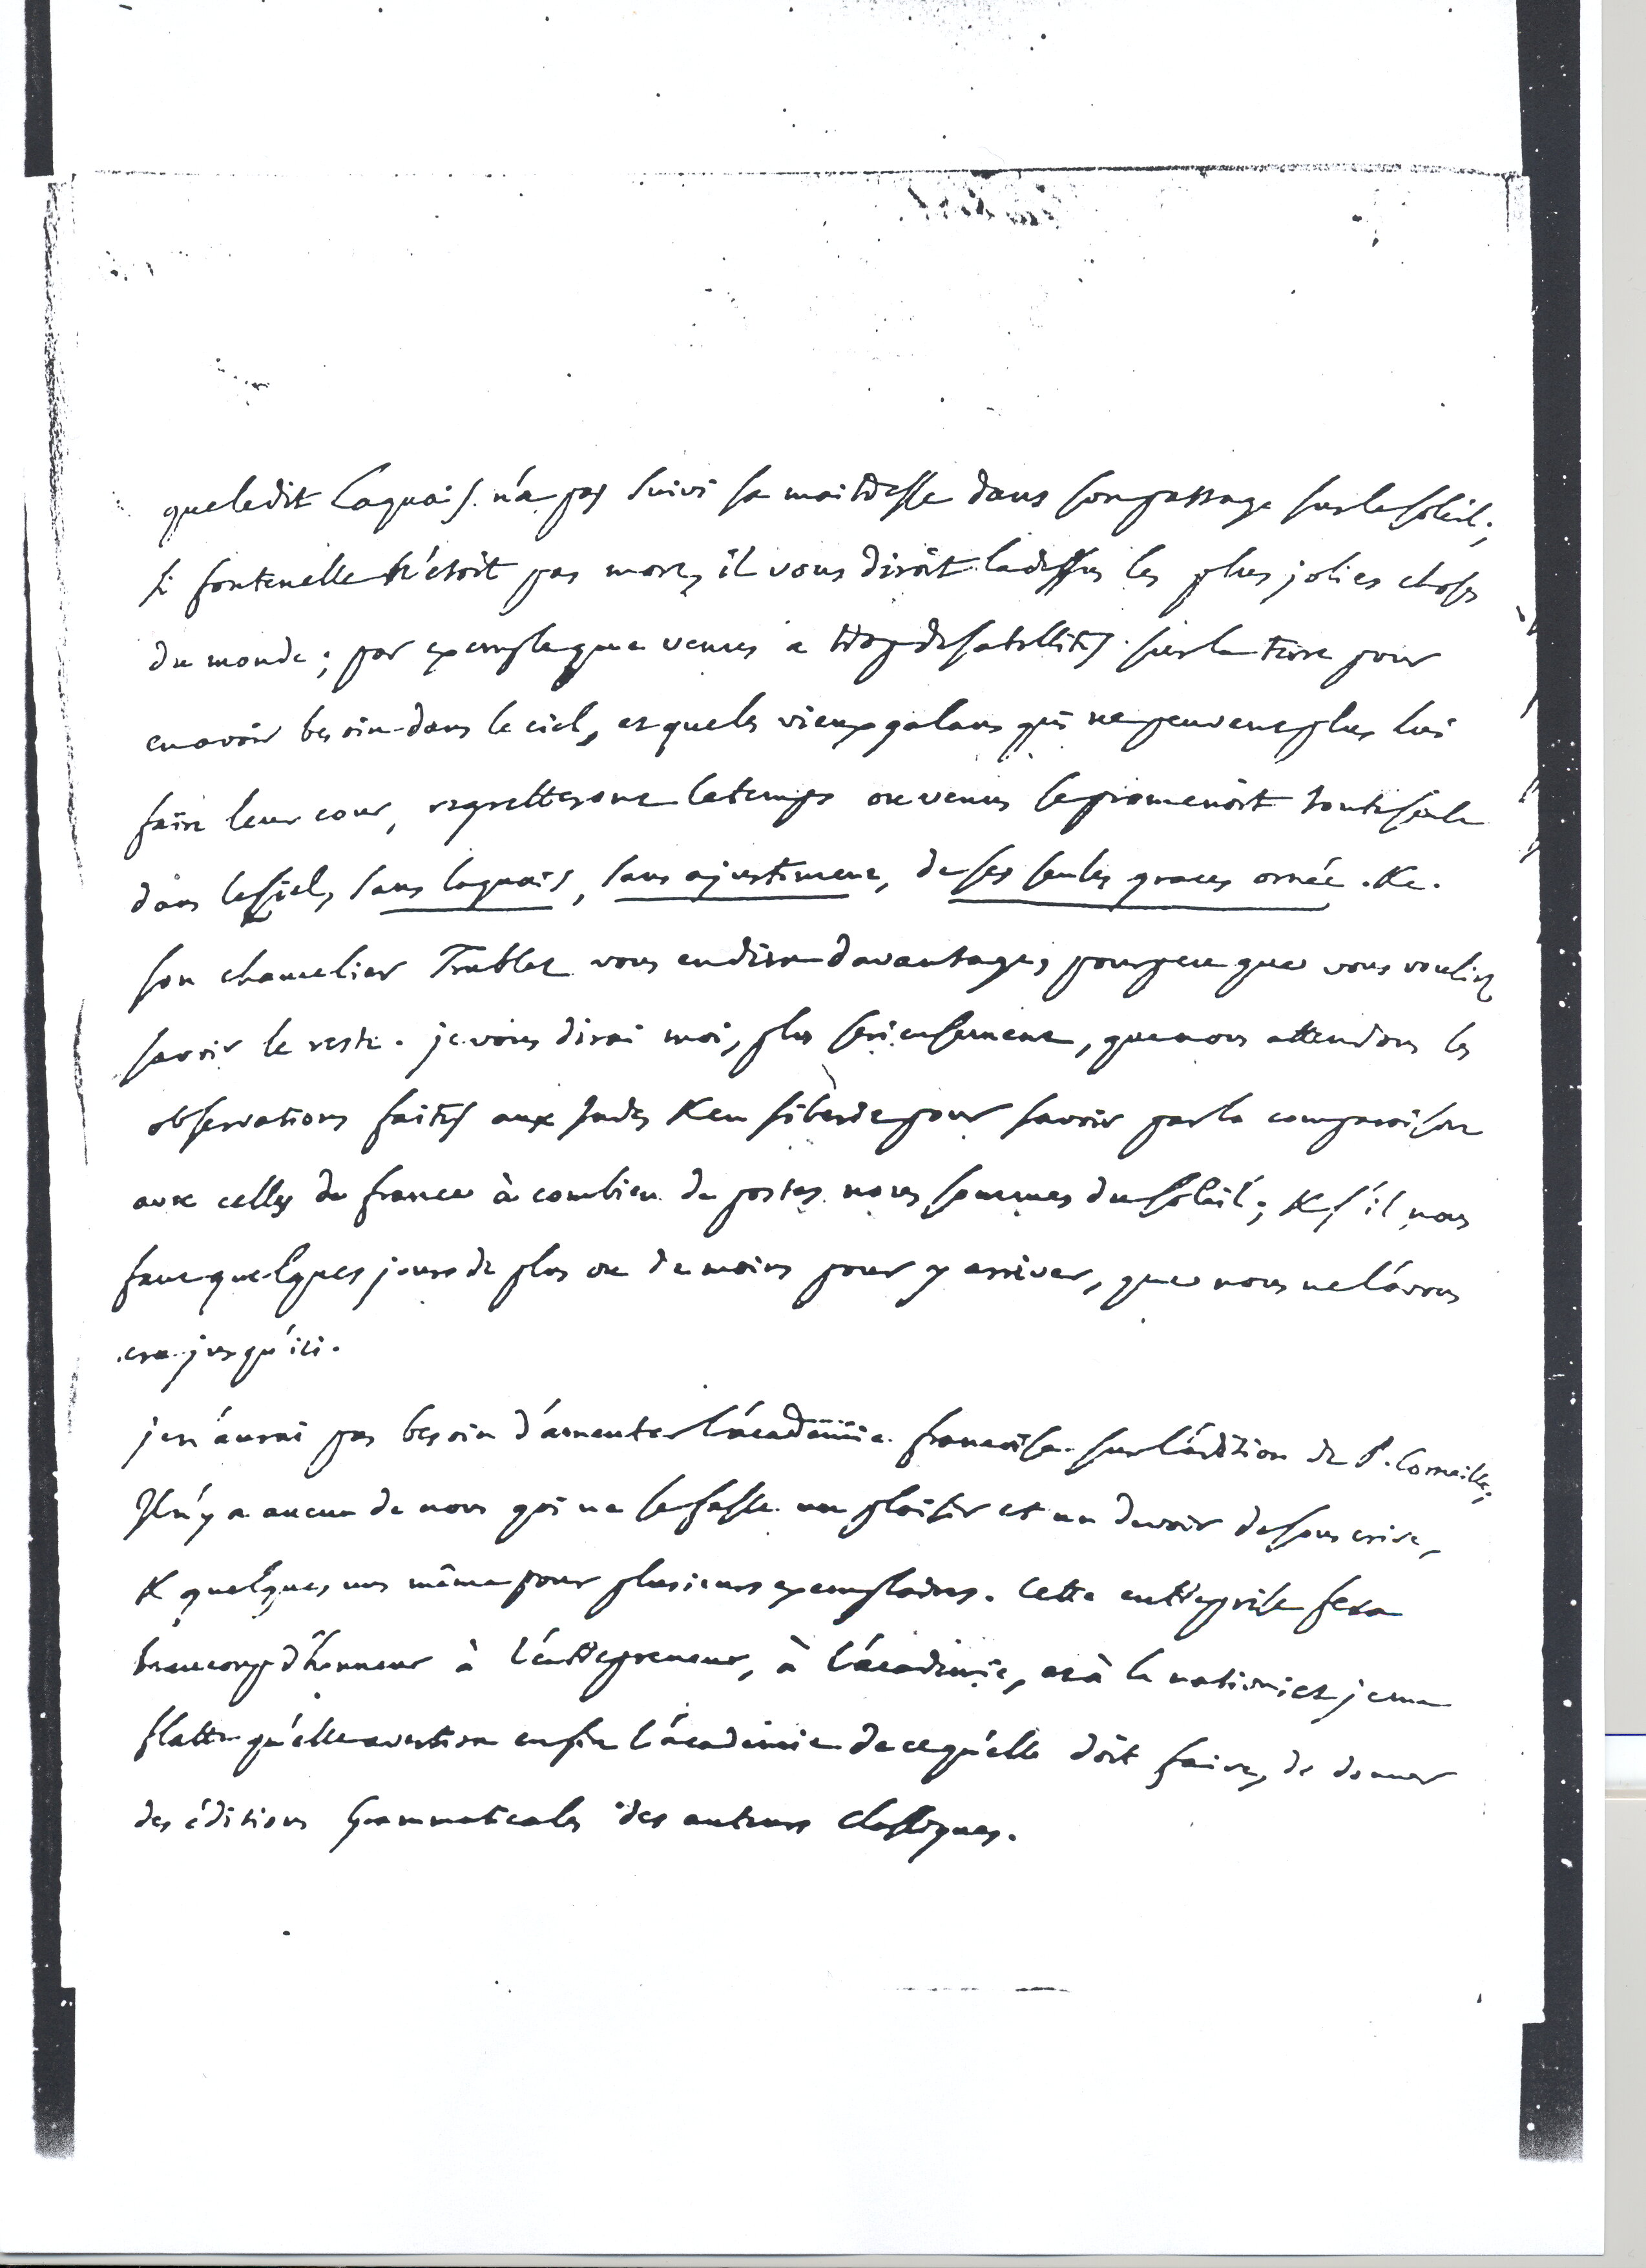 que ledit laquais n'a pas suivi sa maitresse dans son passage sur le soleil;
si fontenelle n'etoit pas mort, il vous diroit la dessus les plus jolies choses
du monde; par exemple que venus a trop de satellites sur la terre pour
en avoir besoin dans le ciel, et que les vieux galans qui ne peuvent plus lui
faire leur cour, regretteront le temps ou venus se promenoit toute seule
dans le ciel, sans laquais, sans ajustement, de ses seules graces ornée. &c.
son chancelier Trublet vous en dira davantage, pour peu que vous vouliez
savoir le reste. je vous dirai moi, plus serieusement, que nous attendons les
observations faites aux Indes & en siberie pour savoir par la comparaison
avec celles de france à combien de postes nous sommes du soleil; & s'il nous
faut quelques jours de plus ou de moins pour y arriver, que nous ne l'avons
cru jusqu'ici.
je n'aurai pas besoin d'ameuter l'académie françoise sur l'édition de P. Corneille;
Il n'y a aucun de nous qui ne se fasse un plaisir et un devoir de souscrire,
& quelques uns même pour plusieurs exemplaires. Cette entreprise fera
beaucoup d'honneur à l'entrepreneur, à l'académie, et à la nation; et je me
flatte qu'elle avertira enfin l'académie de ce qu'elle doit faire, de donner
des éditions grammaticales des auteurs classiques.